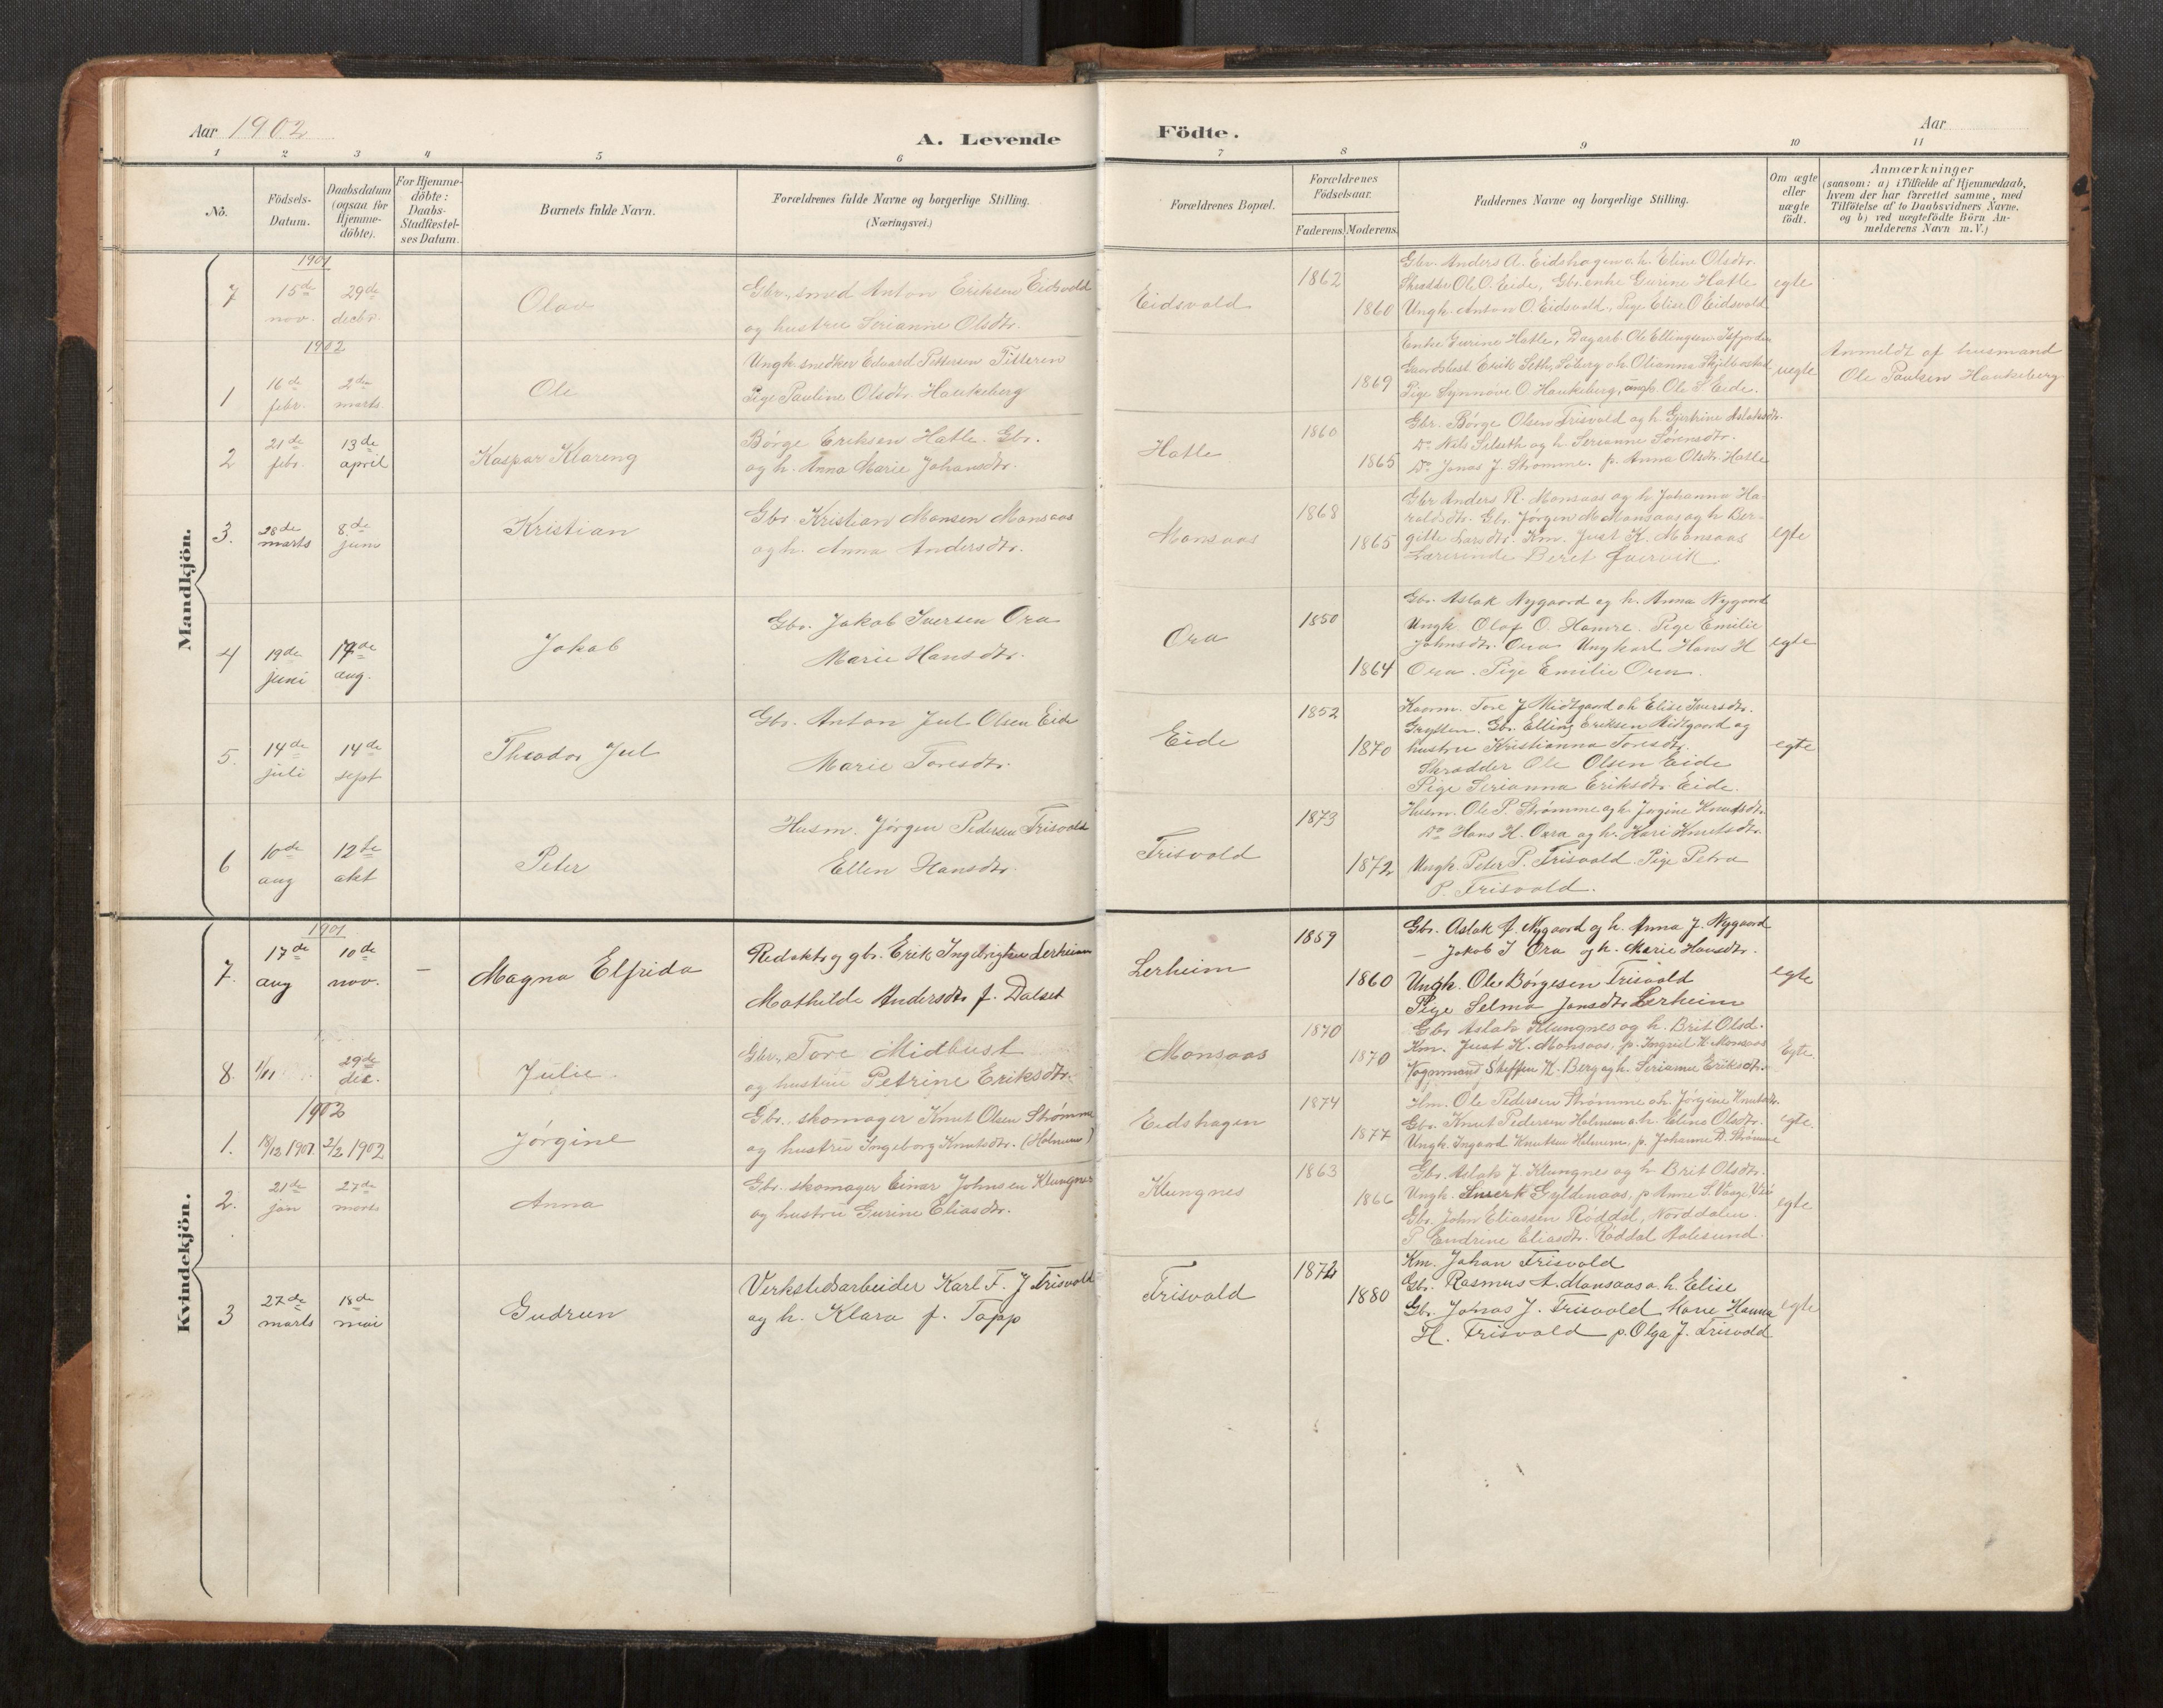 Aar 1902
A. Levende
Födte.
Aar
1 2 3 4 5 6 7 8 9 10 11
No.
Födsels-
Datum.
Daabsdatum
(ogsaa for
Hjemme-
döbte).
For Hjemme-
döbte:
Daabs-
Stadfæstel-
ses Datum.
Barnets fulde Navn.
Forældrenes fulde Navne og borgerlige Stilling.
(Næringsvei.)
Forældrenes Bopæl.
Forældrenes
Födselsaar.
Faderens. Moderens.
Faddernes Navne og borgerlige Stilling.
Om ægte
eller
uægte
födt.
Anmærkninger
(saasom: a) i Tilfælde af Hjemmedaab,
hvem der har forrettet samme, med
Tilföielse af to Daabsvidners Navne.
og b) ved uægtefödte Börn An-
melderens Navn m. V.)
Mandkjön.
1901
7
15de
nov.
29de
decbr.
Olav
Gbr., smed Anton Eriksen Eidsvold
og hustru Serianne Olsdtr.
Eidsvold
1862
1860
Gbr. Anders A. Eidshagen o. h. Eline Olsdtr.
Skrædder Ole O. Eide, Gbr.enke Gurine Hatle
Ungk. Anton O. Eidsvold, Pige Elise O Eidsvold
egte
1902
1
16de
febr.
2den
marts
Ole
Ungk. snedker Edvard Pettersen Titteren
Pige Pauline Olsdtr. Haukeberg
1869
Enke Gurine Hatle, Dagarb. Ole Ellingsen Isfjorden
Gaardsbest Erik Seth, Soberg o. h. Olianna Skjelbostad
Pige Synnøve O. Haukeberg, ungk. Ole S Eide.
uegte
Anmeldt af husmand
Ole Paulsen Haukeberg
2
21de
febr.
13de
april
Kaspar Klareng
Børge Eriksen Hatle. Gbr.
og h. Anna Marie Johansdtr.
Hatle
1860
1865
Gbr. Børge Olsen Frisvold og h. Gjertrine Aslaksdtr.
Do Nils Silseth og h. Serianne Sørensdtr.
Do Jonas J. Strømme. p. Anna Olsdtr. Hatle
3.
28de
marts
8.de
juni
Kristian
Gbr. Kristian Monsen Monsaas
og h. Anna Andersdtr.
Monsaas
1868
1865
Gbr Anders R. Monsaas og h. Johanna Ha-
raldsdtr. Gbr. Jørgen M Monsaas og h Ber-
gitte Larsdtr. Km. Just K. Monsaas
Lærerinde Beret
egte
4
19de
juni
17de
aug.
Jakob
Gbr. Jakob Iversen Ora
Marie Hansdtr.
Ora
1850
1864
Gbr. Aslak Nygaard og h. Anna Nygaard
Ungk. Olaf O. Hamre. Pige Emilie
Johnsdtr. Ora Ungkarl Hans H
Ora. Pige Emilie Ora.
egte
5.
14de
juli
14de
sept
Theodor Jul
Gbr. Anton Jul. Olsen Eide
Marie Toresdtr.
Eide
1852
1870
Kaarm. Tore J Midtgaard o h Elise Iversdtr.
Grytten. Gbr. Elling Eriksen Midtgaard og
hustru Kristianna Toresdtr.
Skrædder Ole Olsen Eide
Pige Serianna Eriksdtr. Eide.
egte
6
10de
aug
12te
okt
Peter
Husm. Jørgen Pedersen Frisvold
Ellen Hansdtr.
Frisvold
1873
1872
Husm. Ole P. Strømme og h. Jørgine Knutsdtr.
Do Hans H. Oera og h. Kari Knutsdtr.
Ungk. Peter P. Frisvold. Pige Petra
P. Frisvold.
Kvindekjön.
1901
7.
17de
aug
10de
nov.
—
Magna Elfrida
Redaktr og gbr. Erik Ingebrigtsen Lerheim
Mathilde Andersdtr f. Dalset
Lerheim
1859
1860
Gbr. Aslak J. Nygaard og h. Anna J. Nygaard
— Jakob I Ora og h. Marie Hansdtr.
Ungk. Ole Børgesen Frisvold
Pige Selma Jonsdtr. Lerheim
egte
8.
1/11
29de
dec.
Julie
Gbr. Tore Midbust
og hustru Petrine Eriksdtr.
Monsaas
1870
1870
Gbr. Aslak Klungnes og h. Brit Olsd.
Km. Just K. Monsaas, p. Ingrid K. Monsaas
Vognmand Steffen K. Berg og h. Serianne Eriksdtr.
Egte.
1902
1.
18/12 1901.
2/2 1902
Jørgine
Gbr. skomager Knut Olsen Strømme
og hustru Ingeborg Knutsdtr. (Holmem)
Eidshagen
1874
1877
Hm. Ole Pedersen Strømme o h. Jørgine Knutsdtr.
Gbr. Knut Pedersen Holmem o. h. Eline Olsdtr.
Ungk. Ingvard Knutsen Holmem, p. Johanne D. Strømme
egte.
2.
21de
jan
27de
marts
Anna
Gbr. skomager Einar Johnsen Klungnes
og hustru Gurine Eliasdtr.
Klungnes
1863
1866
Gbr. Aslak J. Klungnes og h Brit Olsdtr.
Ungk. Gyldenaas, p Anne S. Vaage,
Gbr. John Eliassen Røddal, Norddalen.
P Endrine Eliasdtr. Røddal Aalesund.
egte
3
27de
marts
18de
mai
Gudrun
Verkstedsarbeider Karl F. J Frisvold
og h. Klara f. Tapp
Frisvold
1872
1880
Km. Johan Frisvold
Gbr. Rasmus A. Monsaas o. h. Elise
Gbr. Jonas J. Frisvold Kone Hanna
H. Frisvold p. Olga J. Frisvold
egte